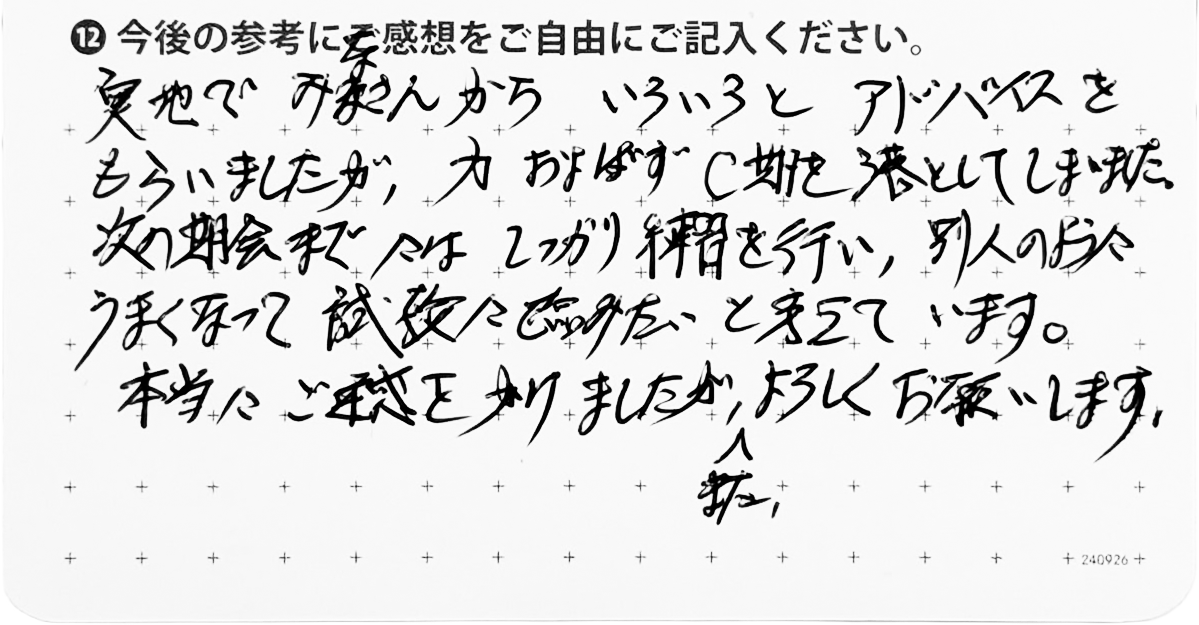 ⓬ 今後の参考にご感想をご自由にご記入ください。
実地で みなさん から いろいろと アドバイスを
もらいましたが, 力 およばず C期を落としてしまいました。
次の期会までには しっかり練習を行い, 別人のように
うまくなって 試験に臨みたい と考えて います。
本当に ご迷惑を かけましたが, よろしくお願いします,
また,
240926